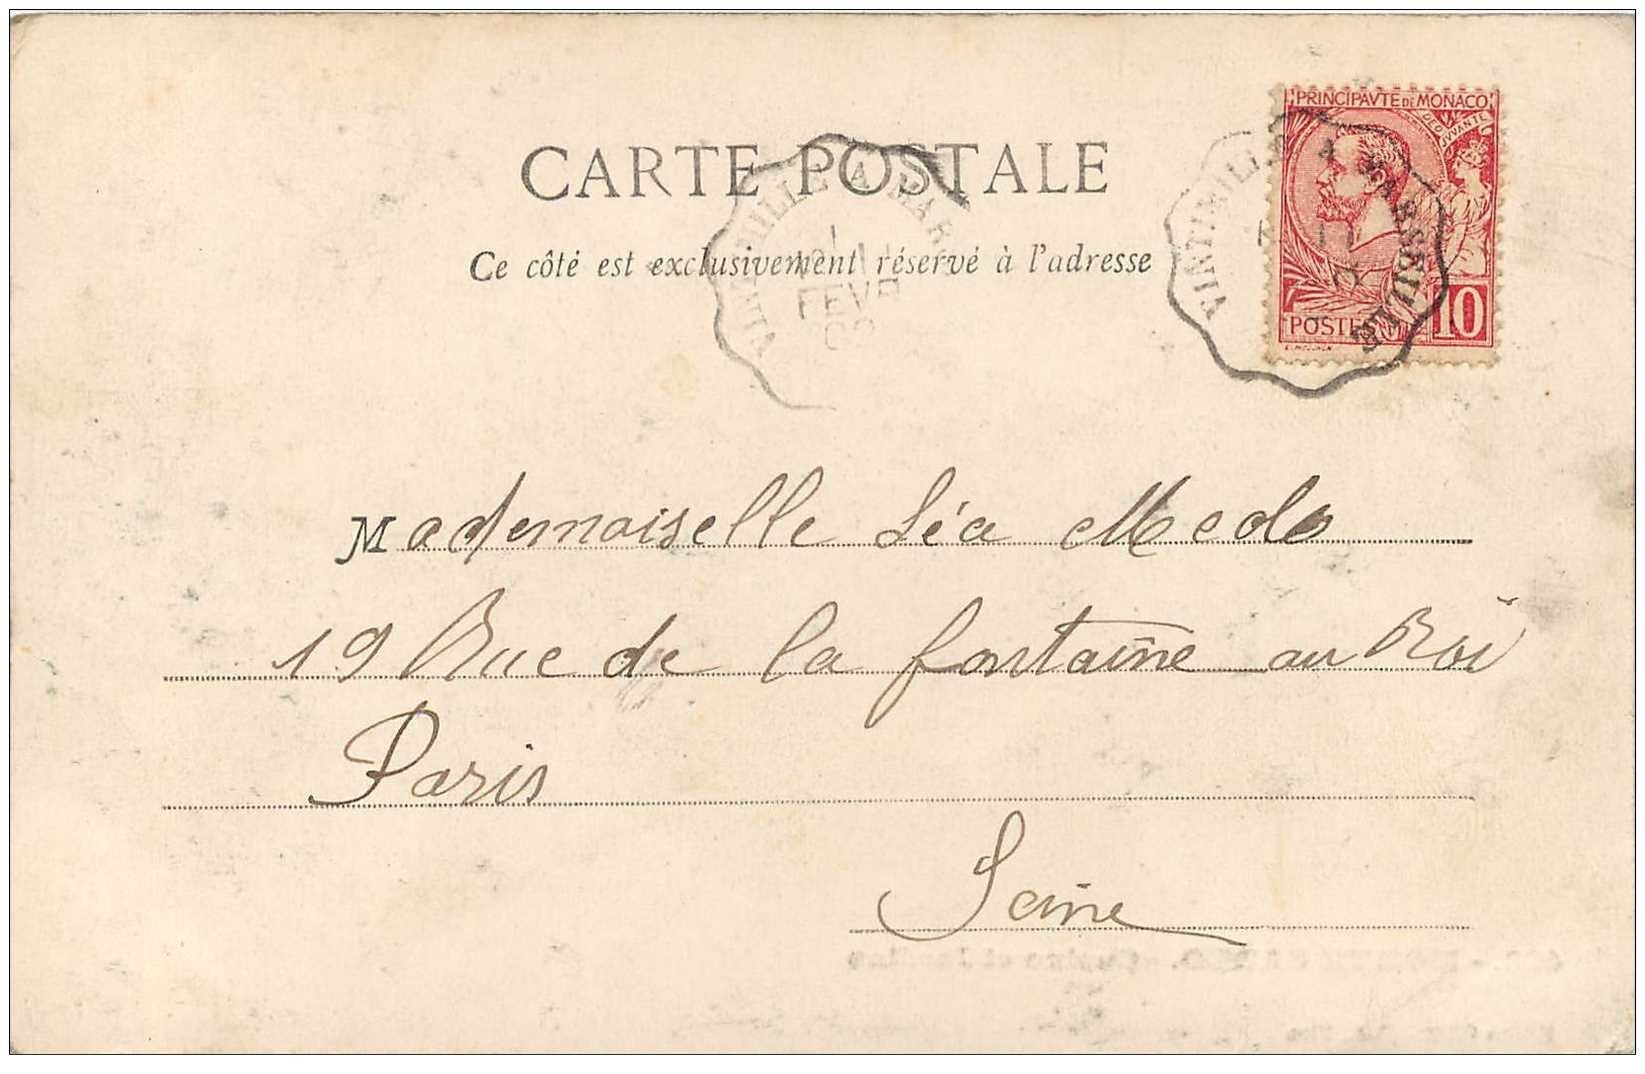 PRINCIPAVTE DE MONACO
DEO JVVANTE
CARTE POSTALE
VINTIMILLE A MARSEILLE
POSTES 10
Ce côté est exclusivement réservé à l'adresse
FEVR
Mademoiselle Léa
19 Rue de la fontaine au Roi
Paris
Seine